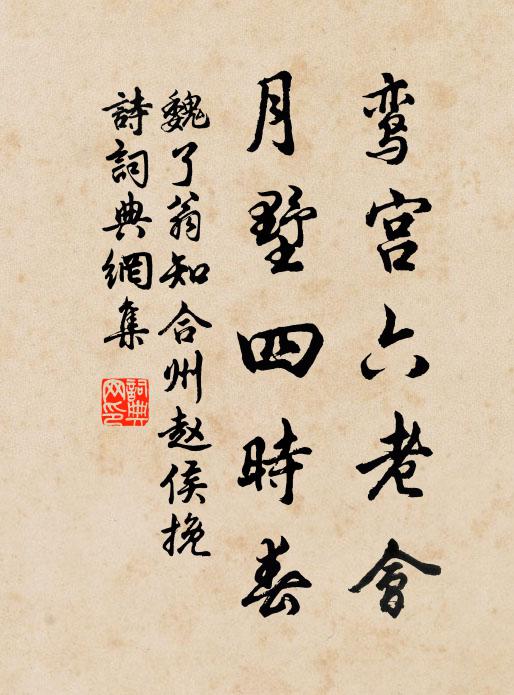 鸾宫六老會
月墅四時春
魏了翁知合州赵侯挽
詩詞典網集
詞典网印